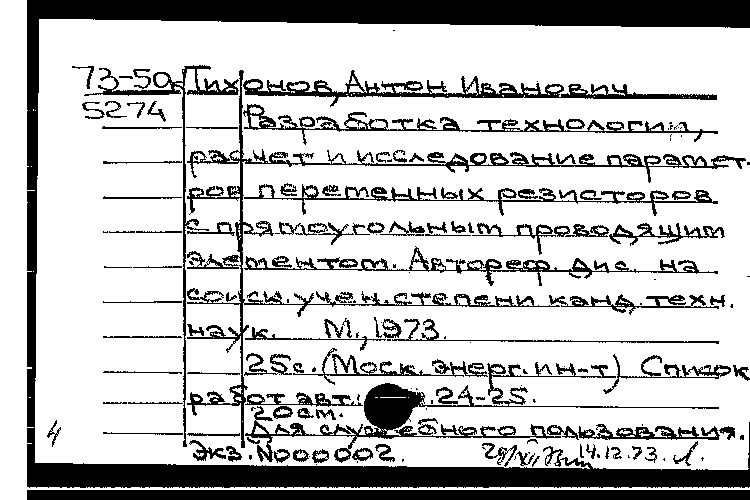 73-50к Тихонов, Антон Иванович
5274 Разработка технологии,
расчет и исследование парамет-
ров переменных резисторов
с прямоугольным проводящим
элементом. Автореф. дис. на
соиск. учен. степени канд. техн.
наук. М., 1973.
25с. (Моск. энерг. ин-т) Список
работ авт.: с.24-25.
20см.
Для служебного пользования.
4
Экз. N000002. 14.12.73. Л.